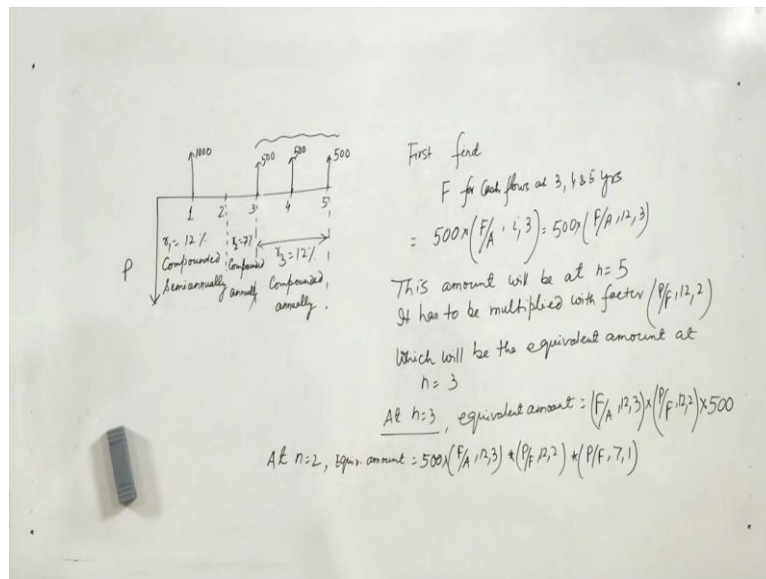 1000
500 500 500
1 2 3 4 5
P
r₁ = 12 %
Compounded
Semiannually
r₂=7%
Compounded
annually
r₃ = 12 %
Compounded
annually
First find
F for Cash flows at 3, 4 & 5 yrs
= 500 x (F/A, i, 3) = 500 x (F/A, 12, 3)
This amount will be at n = 5
It has to be multiplied with factor (P/F, 12, 2)
Which will be the equivalent amount at
n = 3
At n=3, equivalent amount = (F/A, 12, 3) x (P/F, 12, 2) x 500
At n=2, Equiv. amount = 500 x (F/A, 12, 3) * (P/F, 12, 2) * (P/F, 7, 1)